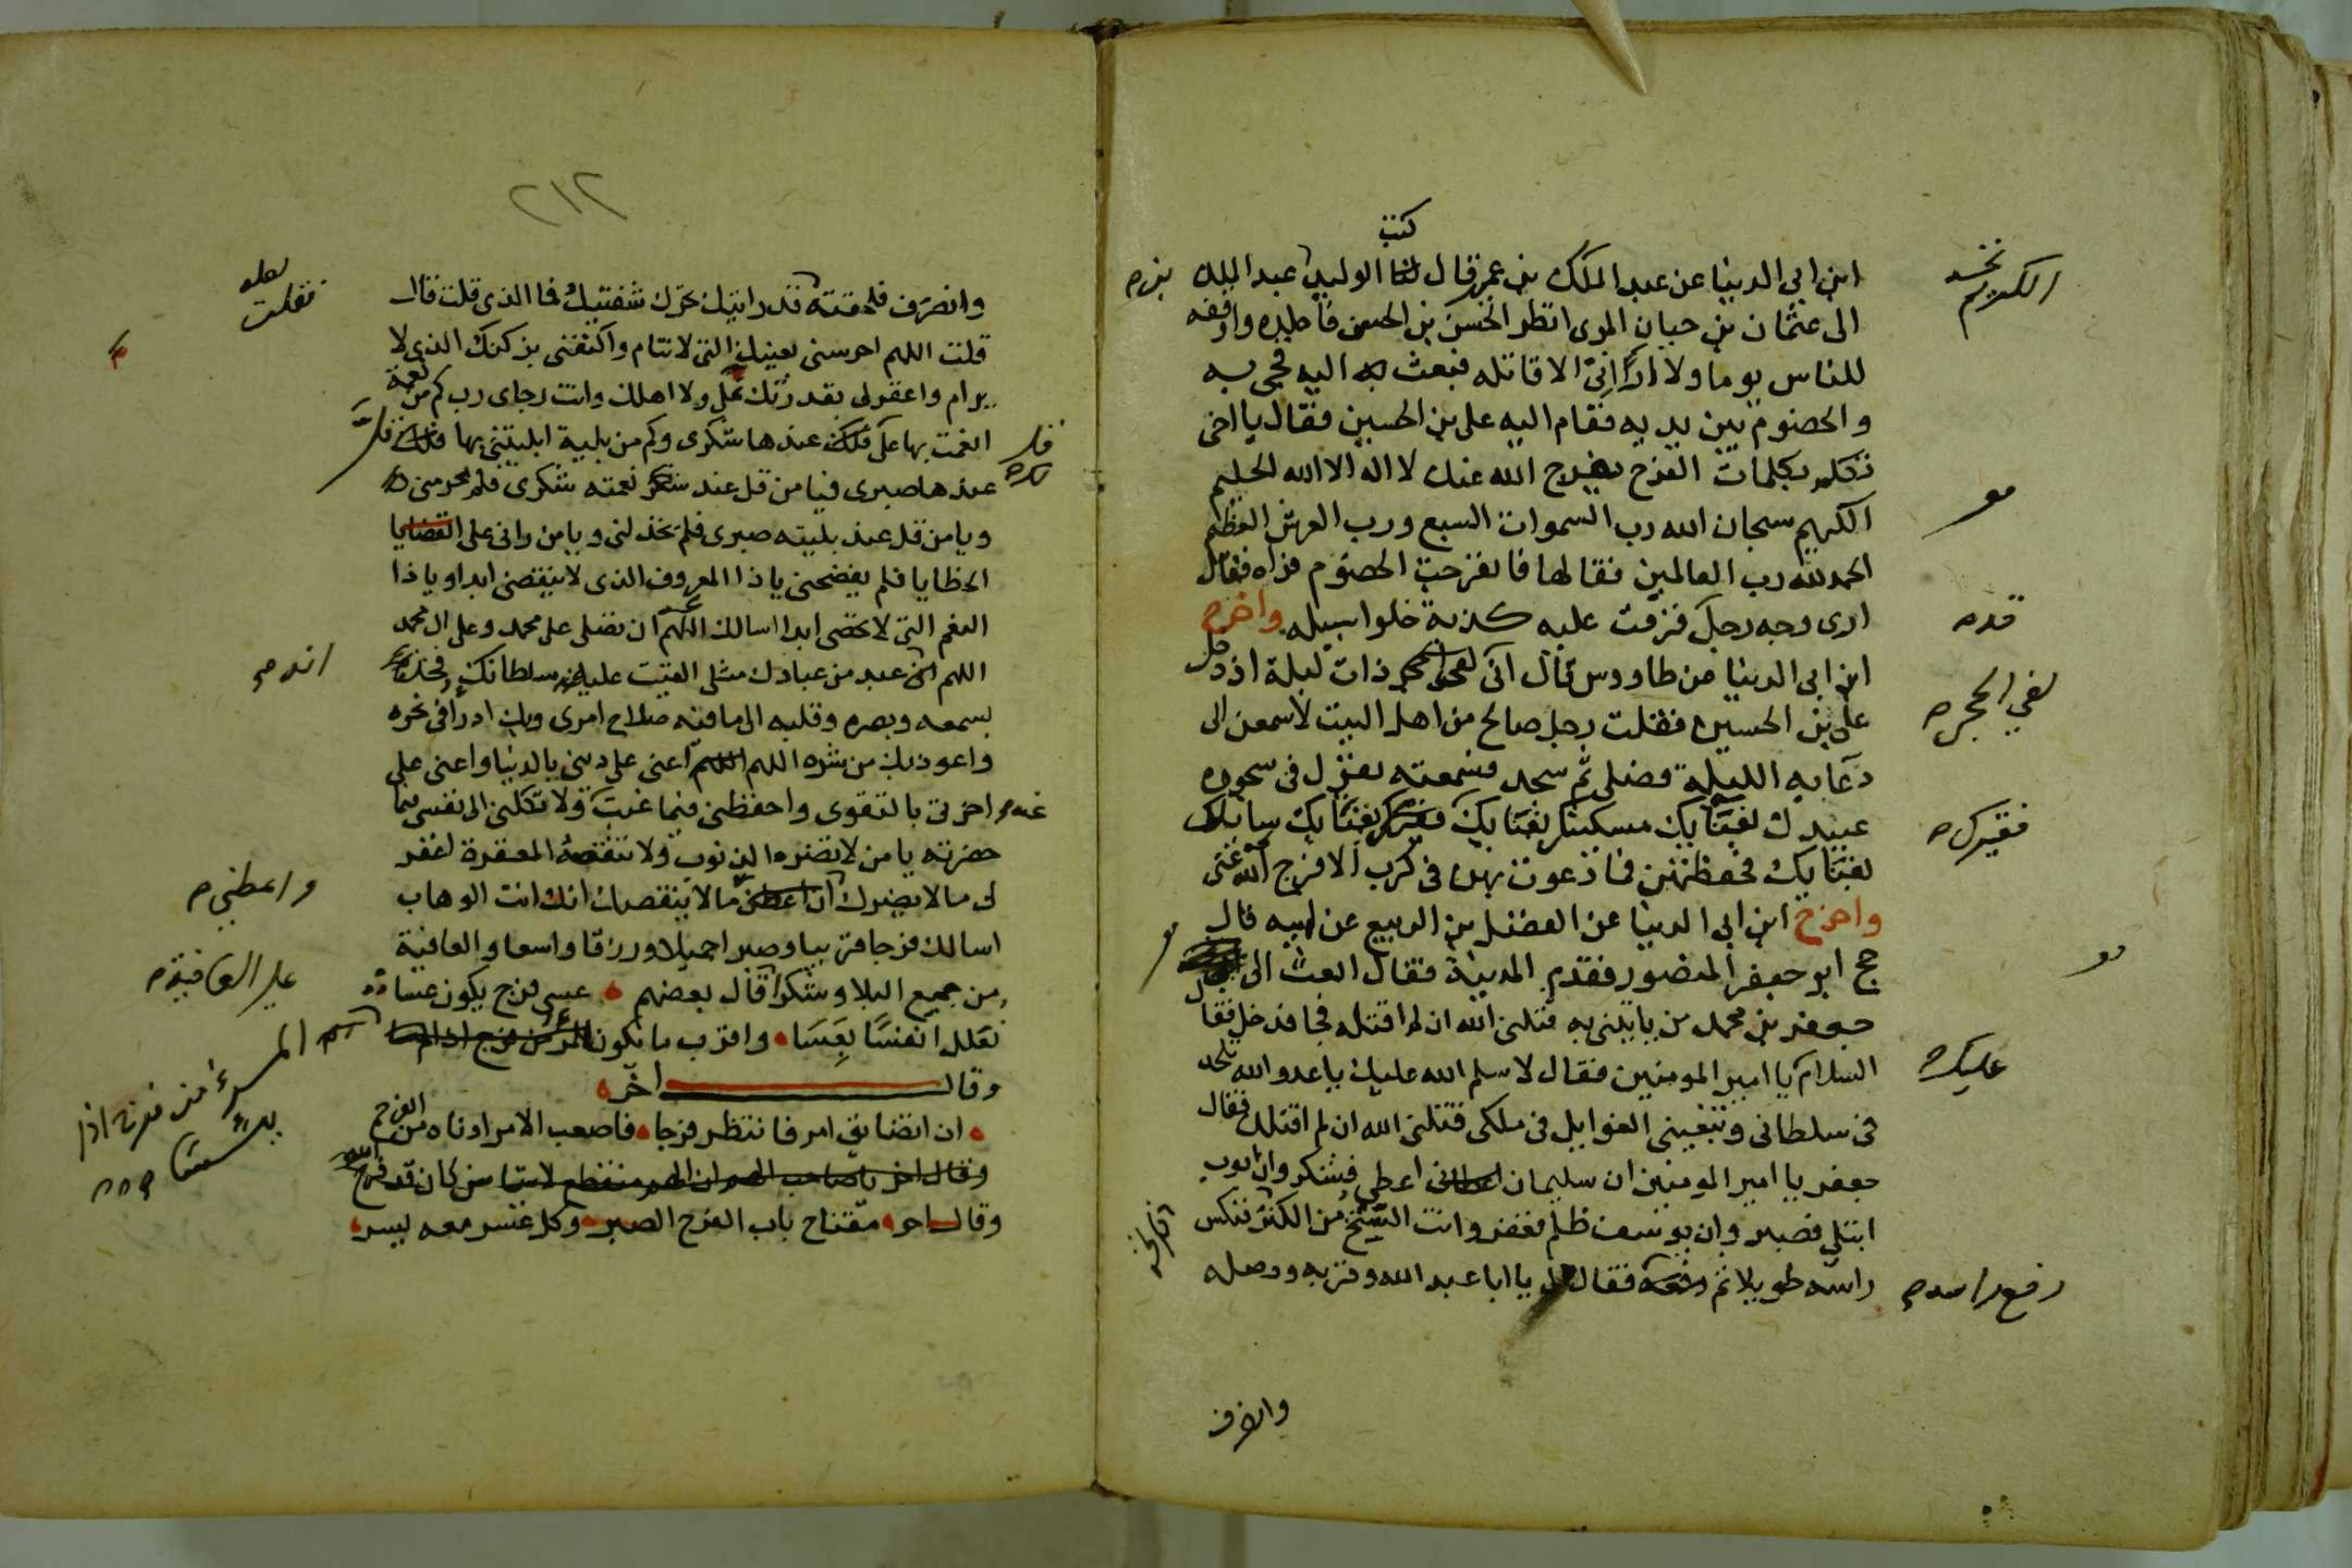 كتب
ابن ابى الدنيا عن عبد الملك بن عمير قال الوليد عبد الملك
الى عثمان بن حيان المرى انظر الحسن بن الحسن فاجلده واوقفه
للناس يوما ولا ارانى الا قاتله فبعث اليه فجى به
والخصوم بين يديه فقام اليه على بن الحسين فقال يا اخى
تكلم بكلمات الفرج يفرج الله عنك لا اله الا الله الحليم
الكريم سبحان الله رب السموات السبع ورب العرش العظيم
الحمد لله رب العالمين فقالها فانفرجت الخصوم فراه فقال
ارى وجه رجل قرفت عليه كذبة خلوا سبيله واخرج
ابن ابى الدنيا عن طاووس قال انى ذات ليلة اذ دخل
على بن الحسين فقلت رجل صالح من اهل البيت لاسمعن الى
دعايه الليلة فصلى ثم سجد فسمعته يقول فى سجوده
عبيدك بفنايك مسكينك بفنايك بفنايك سايلك
بفنايك فحفظتهن فما دعوت بهن فى كرب الا فرج الله عنى
واخرج ابن ابى الدنيا عن الفضل بن الربيع عن ابيه قال
حج ابو جعفر المنصور فقدم المدينة فقال ابعث الى
جعفر بن محمد من ياتينى به قتلنى الله ان لم اقتله فجا فدخل فقال
السلام يا امير المومنين فقال لا سلم الله عليك يا عدو الله تلحد
فى سلطانى وتبغينى الغوايل فى ملكى قتلنى الله ان لم اقتلك فقال
جعفر يا امير المومنين ان سليمان اعطى فشكر وان ايوب
ابتلى فصبر وان يوسف ظلم فغفر وانت من فنكس
راسه طويلا ثم فقال يا ابا عبد الله وقربه ووصله
وانصرف
الكريم
قد
لفي الحجر
فقيرك
عليك
رفع راسه
٢١٢
وانصرف فلحقته قد رايتك تحرك شفتيك فما الذى قلت قال
قلت اللهم احرسنى بعينك التى لا تنام واكنفنى بركنك الذى لا
يرام واغفر لى بقدرتك على ولا اهلك وانت رجاى رب كم من نعمة
انعمت بها على عندها شكرى وكم من بلية ابليتنى بها قل
عندها صبرى فيا من قل عند نعمته شكرى فلم يحرمنى
ويا من قل عند بليته صبرى فلم يخذلنى ويا من رانى على
الخطايا فلم يفضحنى يا ذا المعروف الذى لا ينقضى ابدا ويا ذا
النعم التى لا تحصى ابدا اسالك ان تصلى على محمد وعلى ال محمد
اللهم عبد من عبادك مثلى القيت عليه سلطانك فخذ
بسمعه وبصره وقلبه الى ما فيه صلاح امرى وبك ادرا فى نحره
واعوذ بك من شره اللهم اعنى على دينى بالدنيا واعنى على
اخرتى بالتقوى واحفظنى فيما غبت ولا تكلنى الى نفسى فيما
حضرته يا من لا تضره الذنوب ولا تنقصه المغفرة اغفر
لى ما لا يضرك ما لا ينقصك انك انت الوهاب
اسالك فرجا قريبا وصبرا جميلا ورزقا واسعا والعافية
من جميع البلا وشكرا قال بعضهم عسى فرج يكون عسا
نعلل انفسنا بعسا واقرب ما يكون
وقال اخر
ان تضايق امر فانتظر فرجا فاصعب الامر ادناه من الفرج
وقال اخر مفتاح باب الفرج الصبر وكل عسر معه يسر
لعله
فقلت
انه
واعطنى
على العافية
المرء من فرج اذا